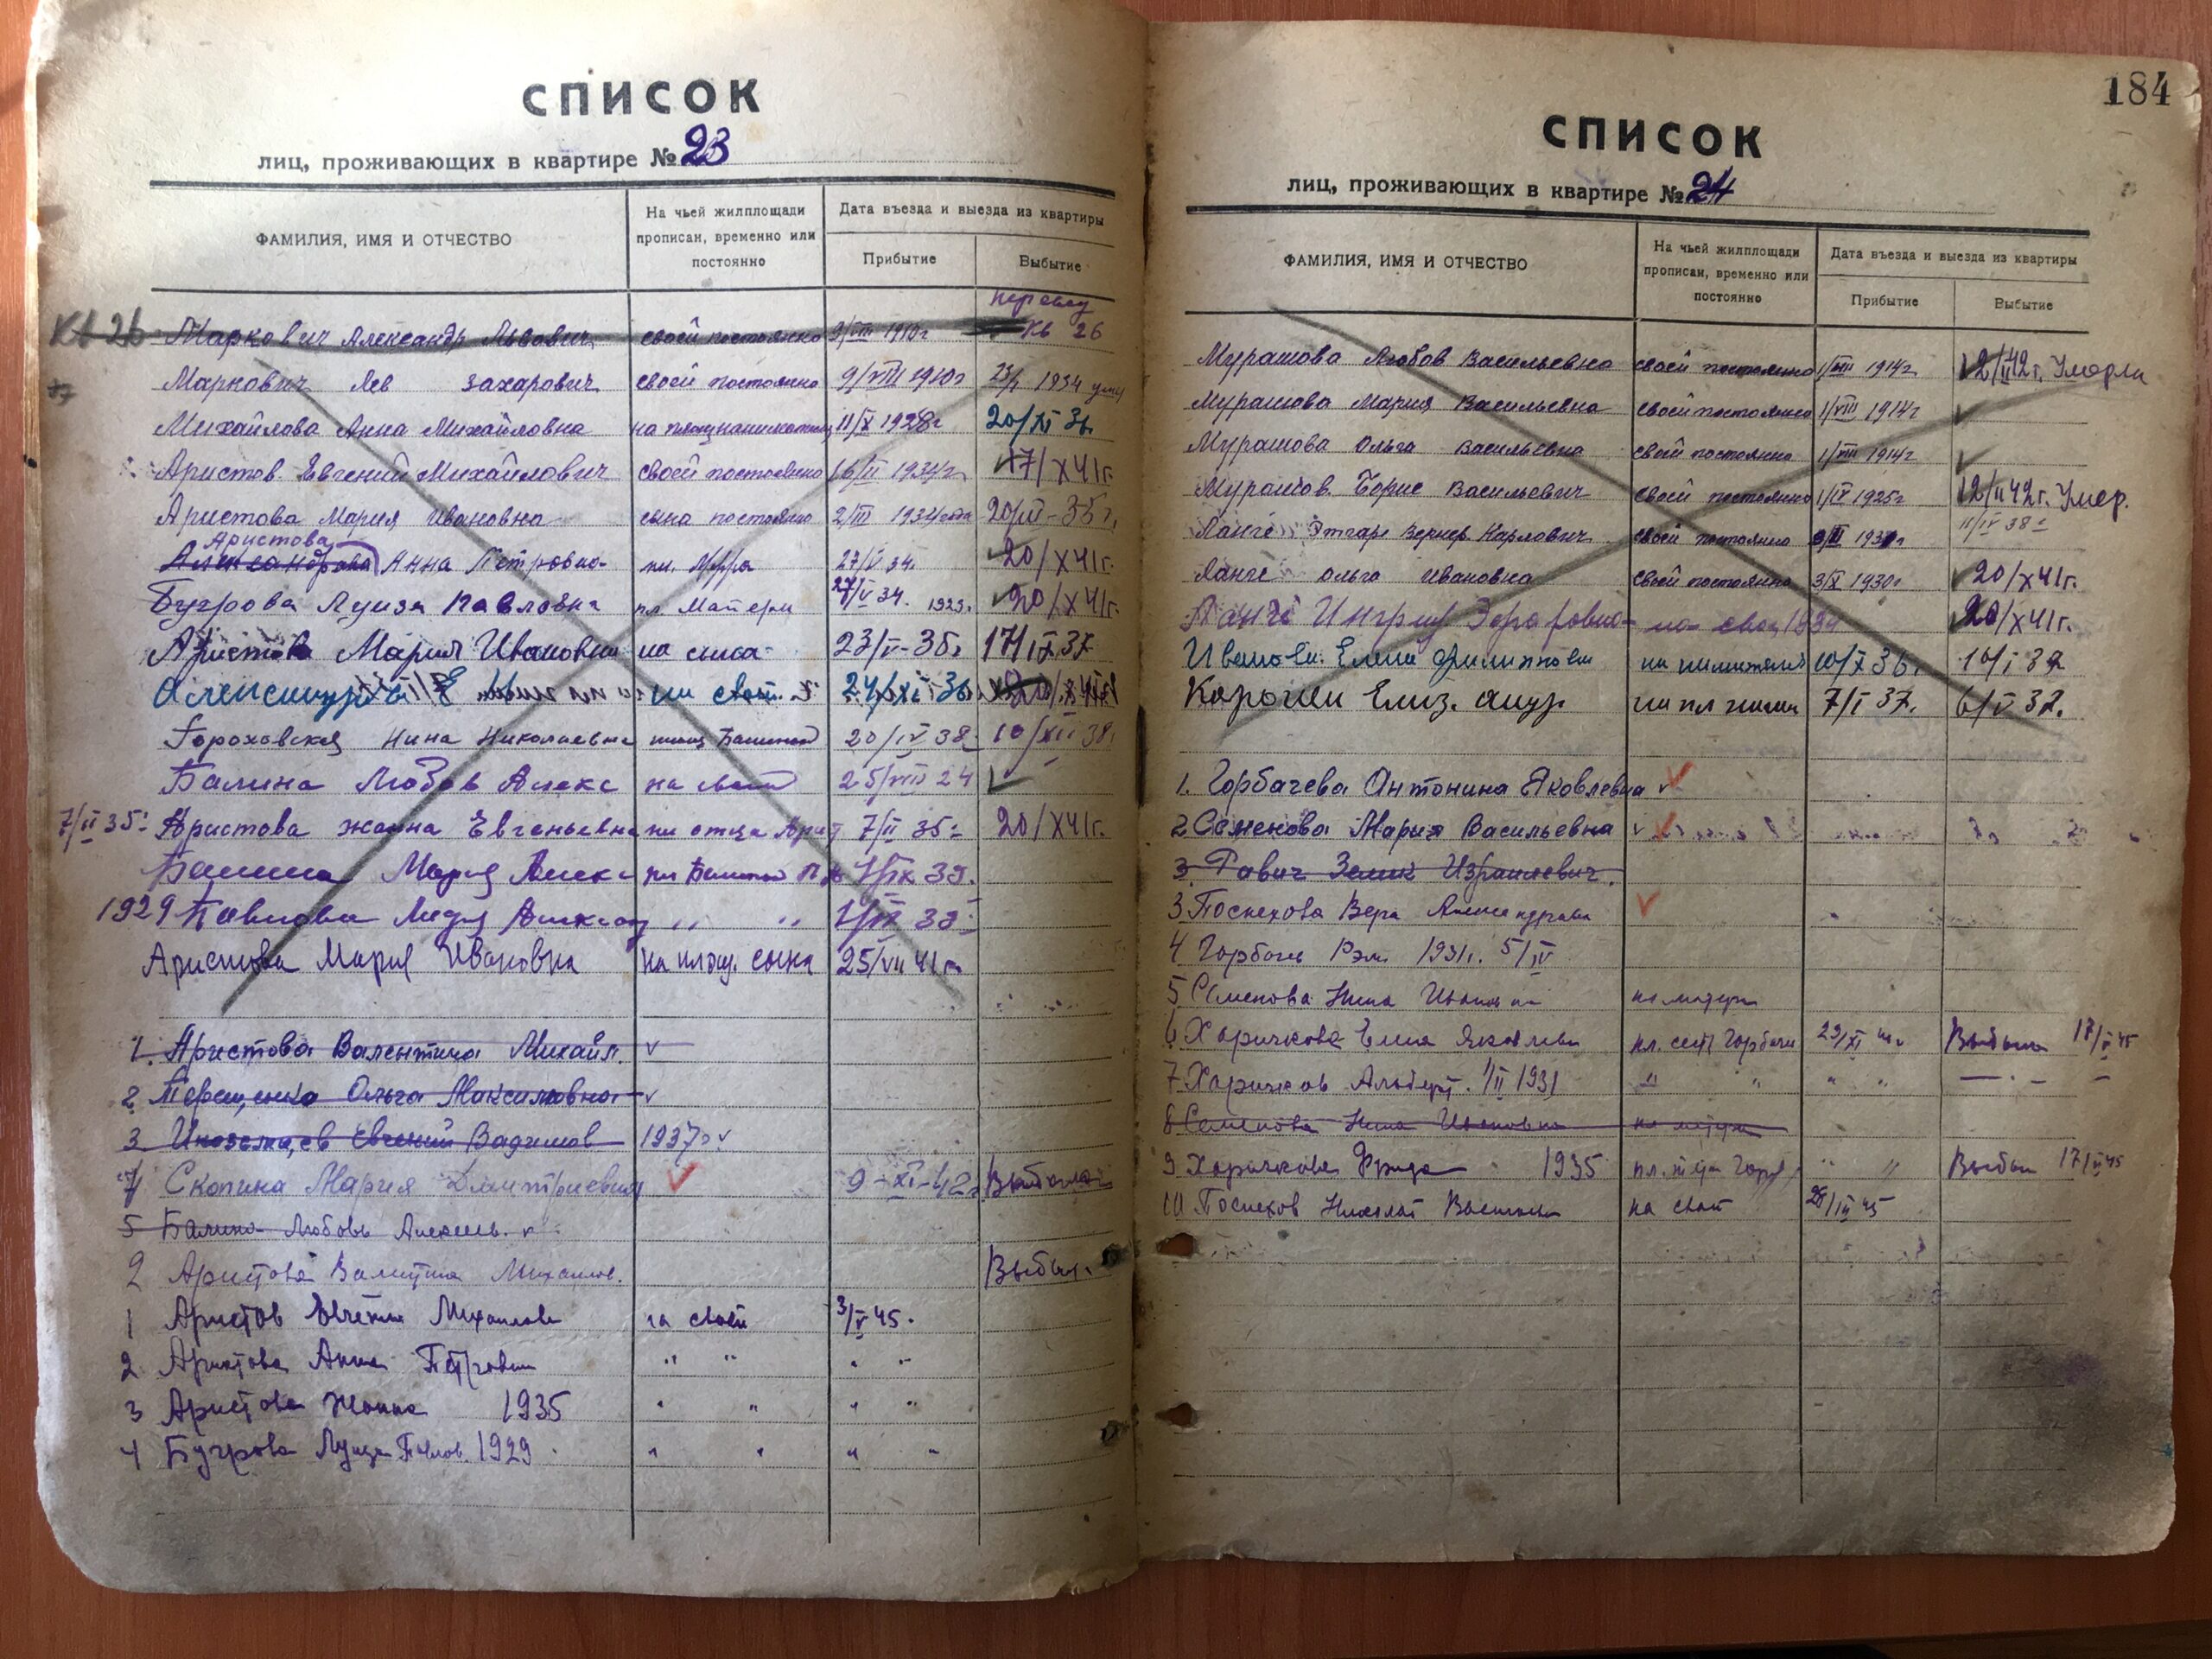 СПИСОК
лиц, проживающих в квартире № 23
ФАМИЛИЯ, ИМЯ И ОТЧЕСТВО
На чьей жилплощади прописан, временно или постоянно
Дата въезда и выезда из квартиры
Прибытие
Выбытие
кв 26 Маркович Александр Львович своей постоянно 9/VIII 1910г кв 26
Маркович Лев Захарович своей постоянно 9/VIII 1910г 1934
Михайлова Анна Михайловна 11/X 1928г 20/XI 36.
Аристов Евгений Михайлович своей постоянно 16/II 1934г. 17/X 41г.
Аристова Мария Ивановна сына постоянно 2/III 1934года 20/III-35г.
Аристова
Александрова Анна Петровна пл. 27/V 34. 20/X 41г.
Бугрова Луиза Павловна пл Матери 27/V 34. 1929. 20/X 41г.
Аристова Мария Ивановна на сына 23/V-36г 17/IX 37
24/XI 36 20/X 41г
Гороховская Нина Николаевна 20/IV 38г 10/XII 38г
Балина Любовь Алекс на свой 25/VIII 24
7/II 35г Аристова Жанна Евгеньевна на отца Арист 7/II 35г 20/X 41г.
Балина Мария Алекс пл Балиной 1/IX 39.
1929 Павлова Лидия " " 1/IX 39г
Аристова Мария Ивановна на площ. сына 25/VII 41г.
1. Аристова Валентина Михайл.
2. Ольга Максимовна
3. Иноземцев Евгений Вадимов 1937г
4 Скопина Мария Дмитриевна 9-XI-42г Выбыла
5 Балина Любовь Алексеев.
2 Аристова Валентина Михайлов. Выбыл.
1 Аристов Евгений Михайлов на свой 3/V 45.
2 Аристова Анна Петровн " " " "
3 Аристова Жанна 1935 " " " "
4 Бугрова Луиза Павлов. 1929 " " " "
184
СПИСОК
лиц, проживающих в квартире № 24
ФАМИЛИЯ, ИМЯ И ОТЧЕСТВО
На чьей жилплощади прописан, временно или постоянно
Дата въезда и выезда из квартиры
Прибытие
Выбытие
Мурашова Любов Васильевна своей постоянно 1/VIII 1914г 2/II 42г. Умерла
Мурашова Мария Васильевна своей постоянно 1/VIII 1914г
Мурашова Ольга Васильевна своей постоянна 1/VIII 1914г
Мурашов Борис Васильевич своей постоянно 1/IX 1925г 12/II 42г. Умер.
Ланге Вернер Карлович своей постоянно 11/IV 38г
Ланге Ольга Ивановна своей постоянно 3/X 1930г 20/X 41г.
Ланге Ингрид 1934 20/X 41г.
Иванова Елена Филиппови 10/X 36г. 10/I 37
Елиз. 7/I 37. 6/V 37.
1. Горбачева Антонина Яковлевна
2 Семенова Мария Васильевна
3. Равич Израилевич.
3 Поспехова Вера Александровн
4 Горбачев Рэм 1931г. 5/IV
5 Семенова Нина Ивановна на матери
6 Харичкова Яковлевн пл. сест Горбачев 29/XI Выбыла 17/V 45
7 Харичков Альберт. 1/II 1931 " " " " — " —
8 Семенова Нина Ивановна на матери
9 Харичкова Фрида 1935 " " Выбыл 17/V 45
10 Поспехов Николай Васильев на свой 28/III 45